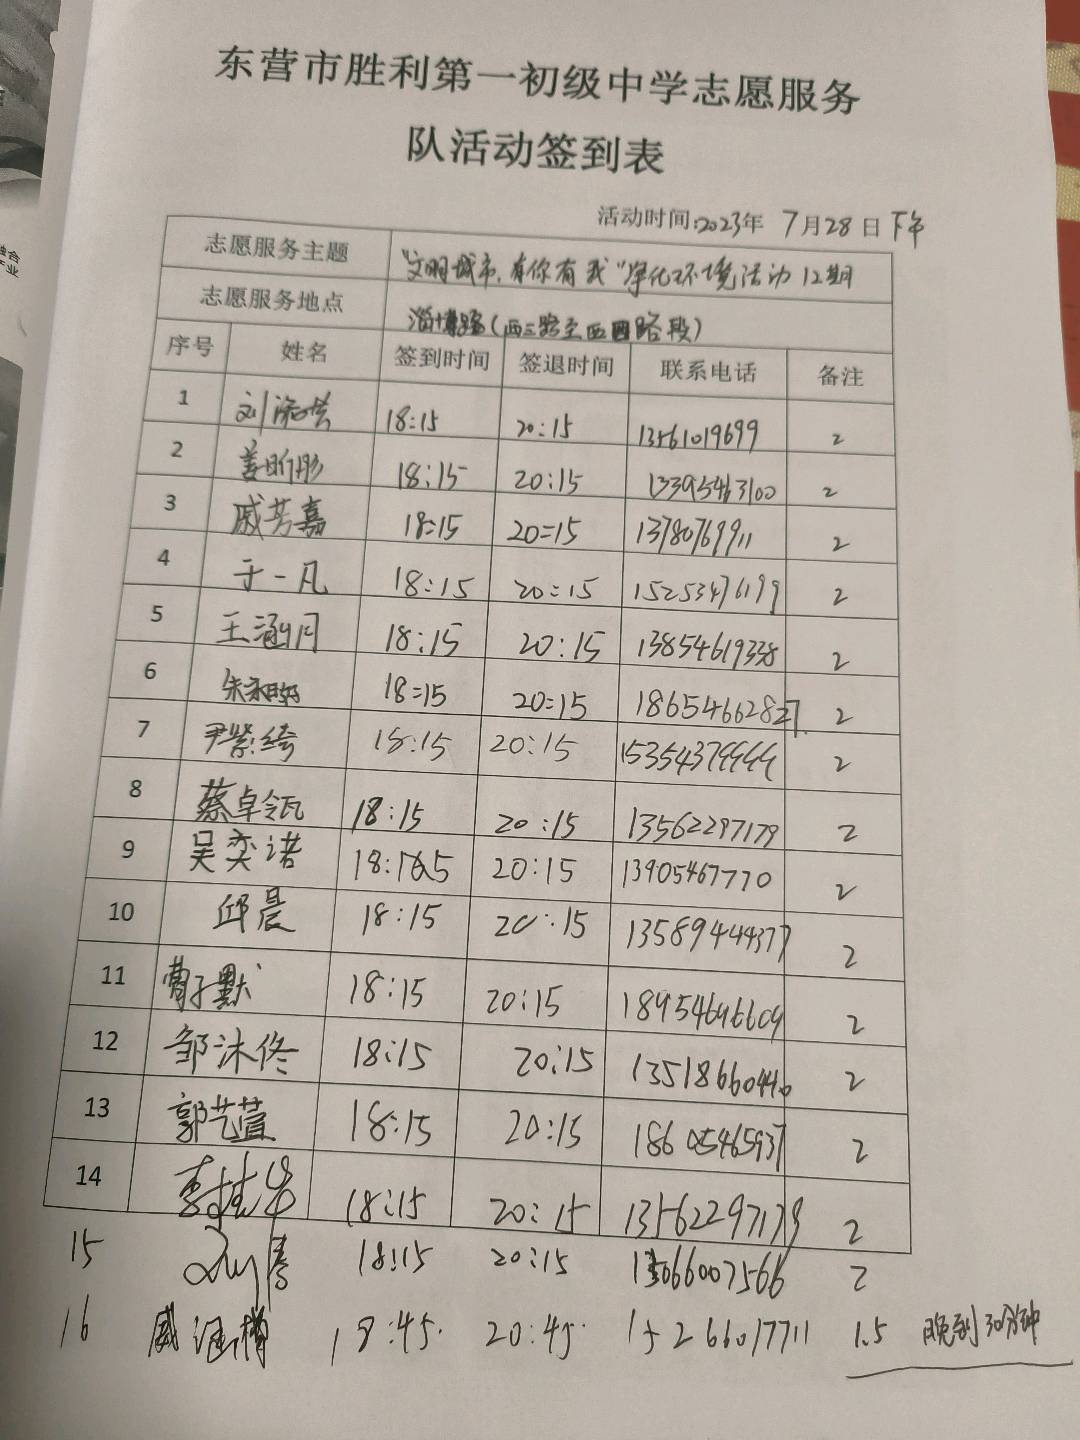 东营市胜利第一初级中学志愿服务
队活动签到表
活动时间:2023年 7月28日 下午
志愿服务主题 "文明城市,有你有我"净化环境活动 12期
志愿服务地点 淄博路(西三路至西四路段)
序号 姓名 签到时间 签退时间 联系电话 备注
1 刘 18:15 20:15 13561019699 2
2 姜昕彤 18:15 20:15 13395463100 2
3 戚芳嘉 18:15 20=15 13780769911 2
4 于一凡 18:15 20:15 15253476199 2
5 王涵月 18:15 20:15 13854619338 2
6 朱 18=15 20=15 18654662827 2
7 尹紫绮 18:15 20:15 15354379999 2
8 蔡卓瓴 18:15 20:15 13562297179 2
9 吴奕诺 20:15 13905467770 2
10 邱晨 18:15 20:15 13589444377 2
11 曹子默 18:15 20:15 18954696609 2
12 邹沐佟 18:15 20:15 13518660440 2
13 郭艺萱 18:15 20:15 18605465937 2
14 李 18:15 20:15 13562297179 2
15 刘涛 18:15 20:15 066007566 2
16 戚 18:45 20:45 15266017711 1.5 晚到30分钟